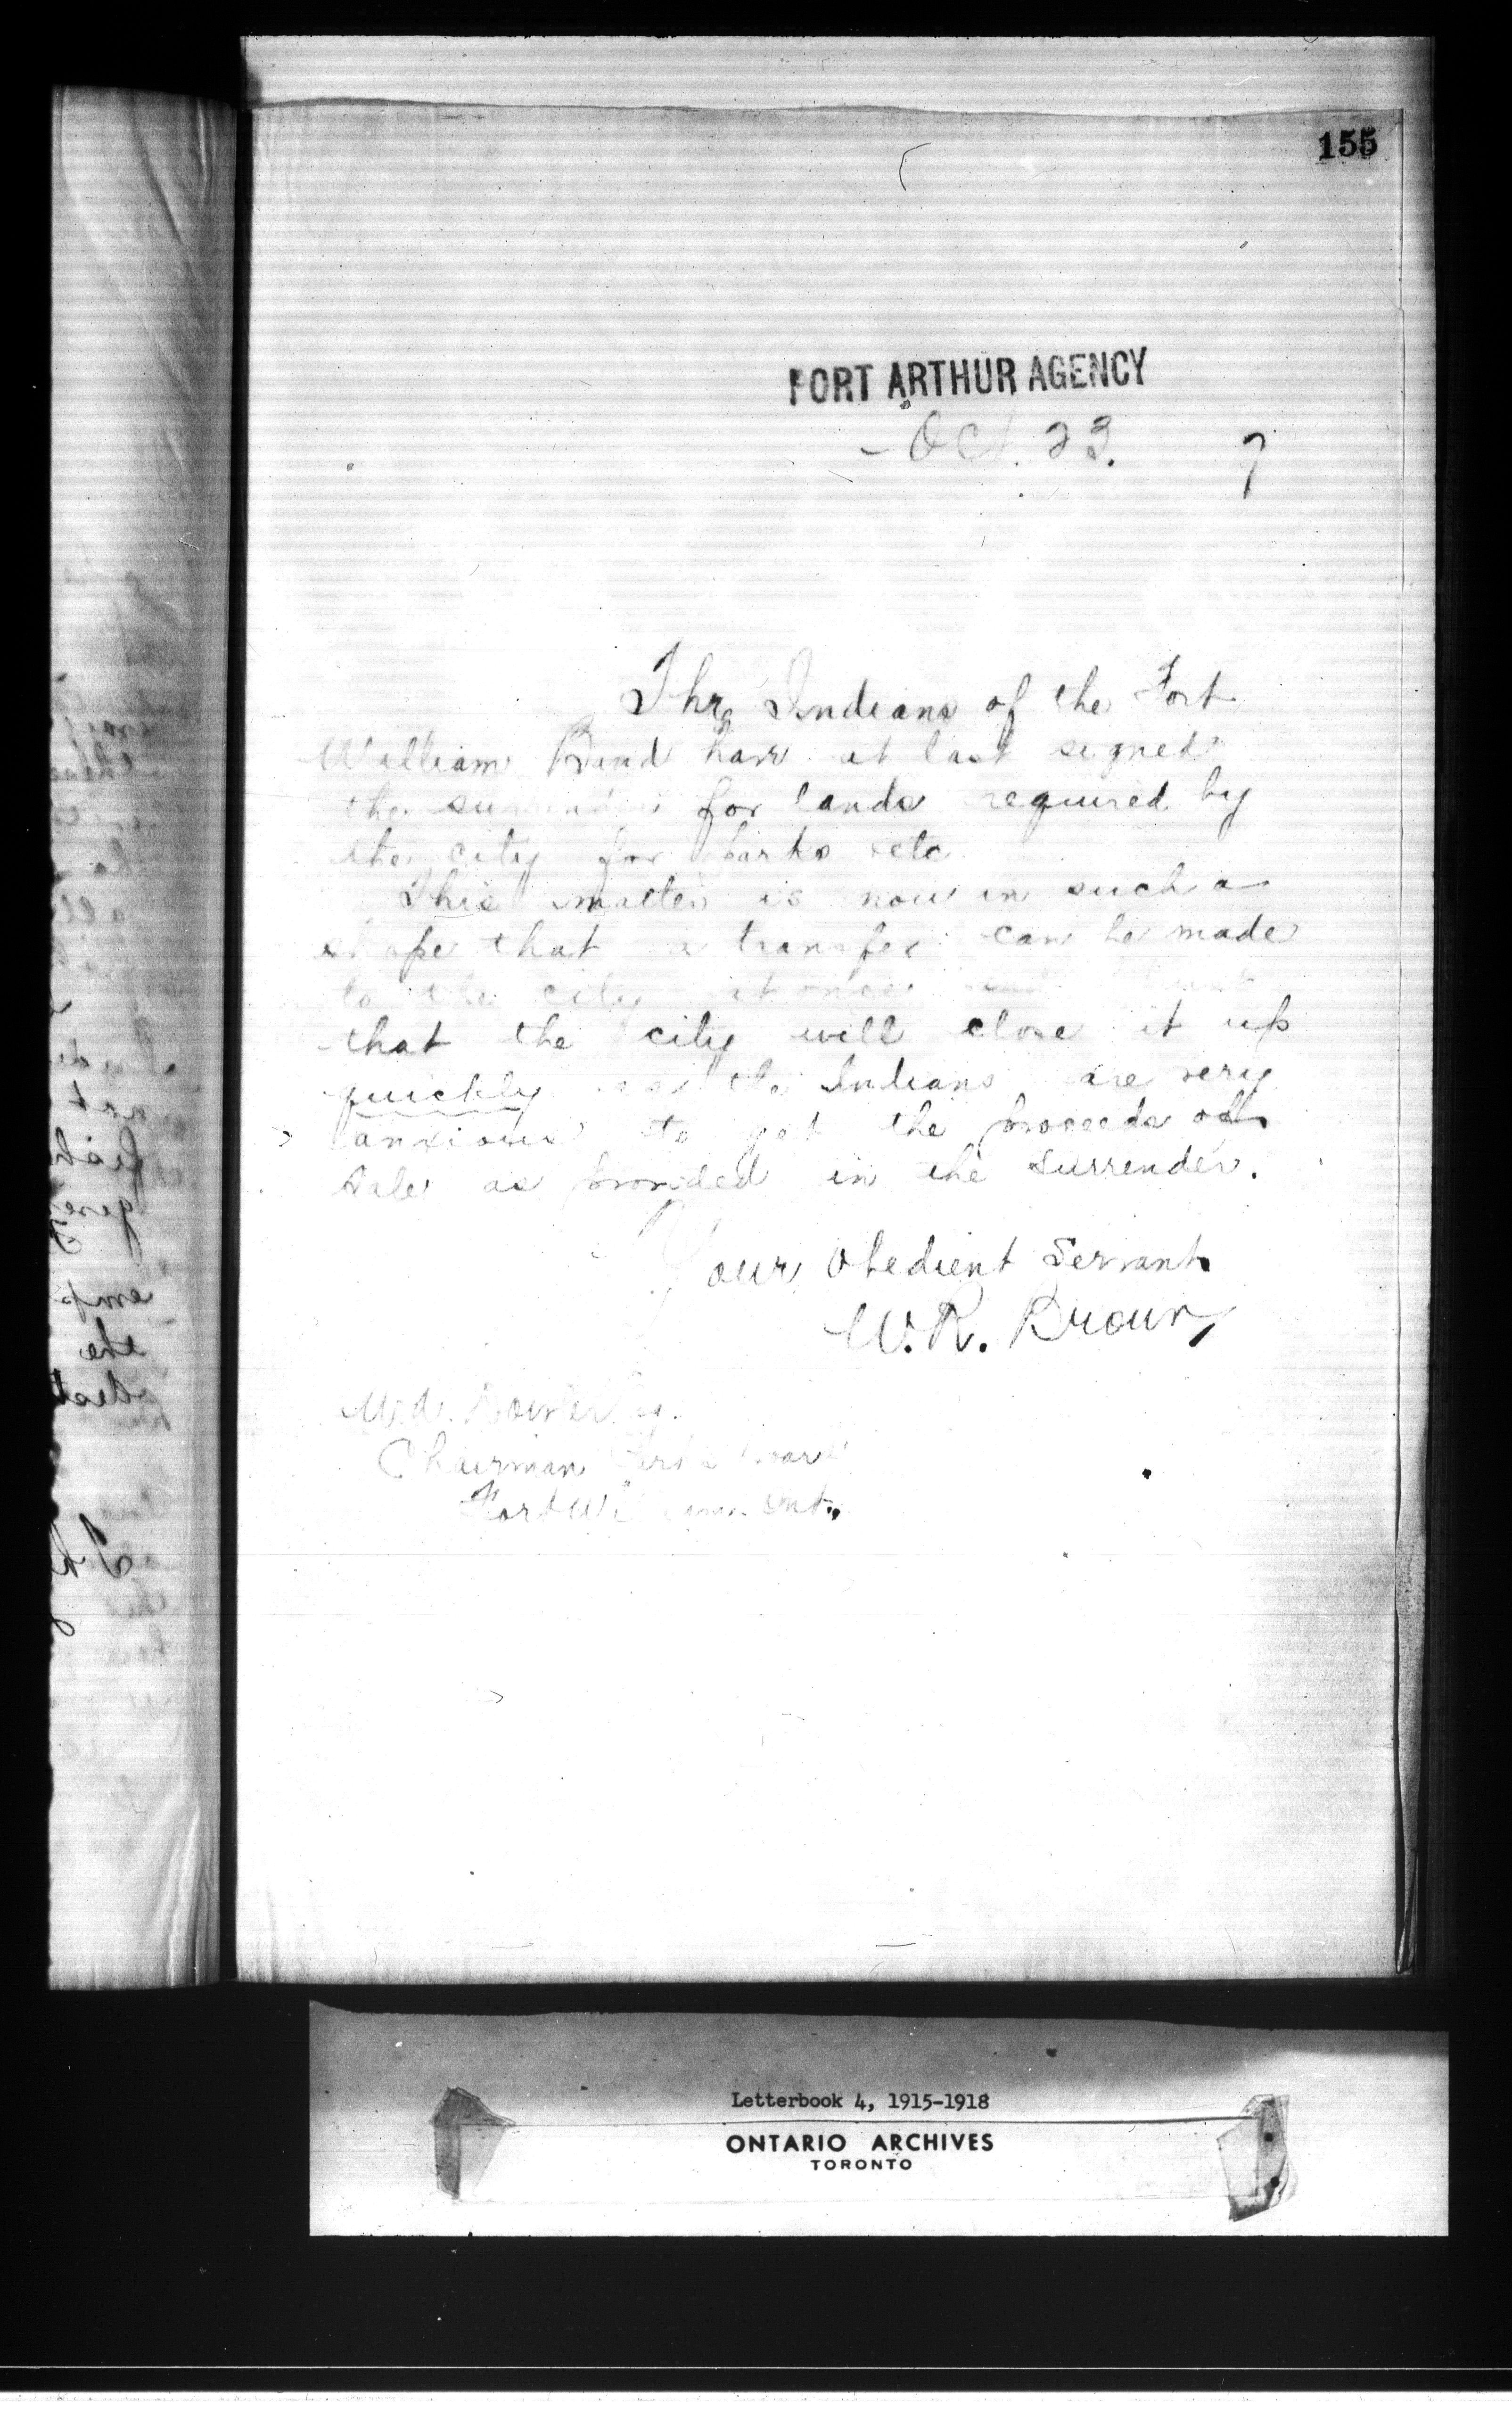 155
PORT ARTHUR AGENCY
Oct. 23. 7
The Indians of the Fort
William Band have at last signed
the surrender for lands required by
the city for parks etc
This matter is now in such a
shape that a transfer can be made
to the city at once and trust
that the city will close it up
quickly as the Indians are very
anxious to get the proceeds of
sale as provided in the surrender.
Your Obedient Servant
W.R. Brown
Chairman Parks Board
Fort William Ont.
Letterbook 4, 1915-1918
ONTARIO ARCHIVES
TORONTO